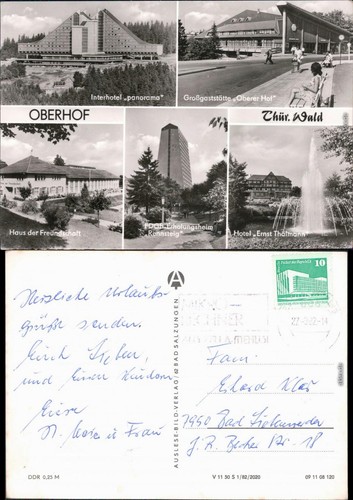 Interhotel „panorama"
Großgaststätte „Oberer Hof"
OBERHOF
Thür. Wald
Haus der Freundschaft
FDGB-Erholungsheim
„Rennsteig"
Hotel „Ernst Thälmann"
Herzliche Urlaubs-
grüße senden
Euch Lieben,
und Euren Kindern
Eure
u. Frau
AUSLESE-BILD-VERLAG / 62 BAD SALZUNGEN
DDR 10
Fam.
Erhard
Bad Liebenwerda
J. R. Becher Str. 18
DDR 0,25 M
V 11 50 S 1/82/2020
09 11 08 120